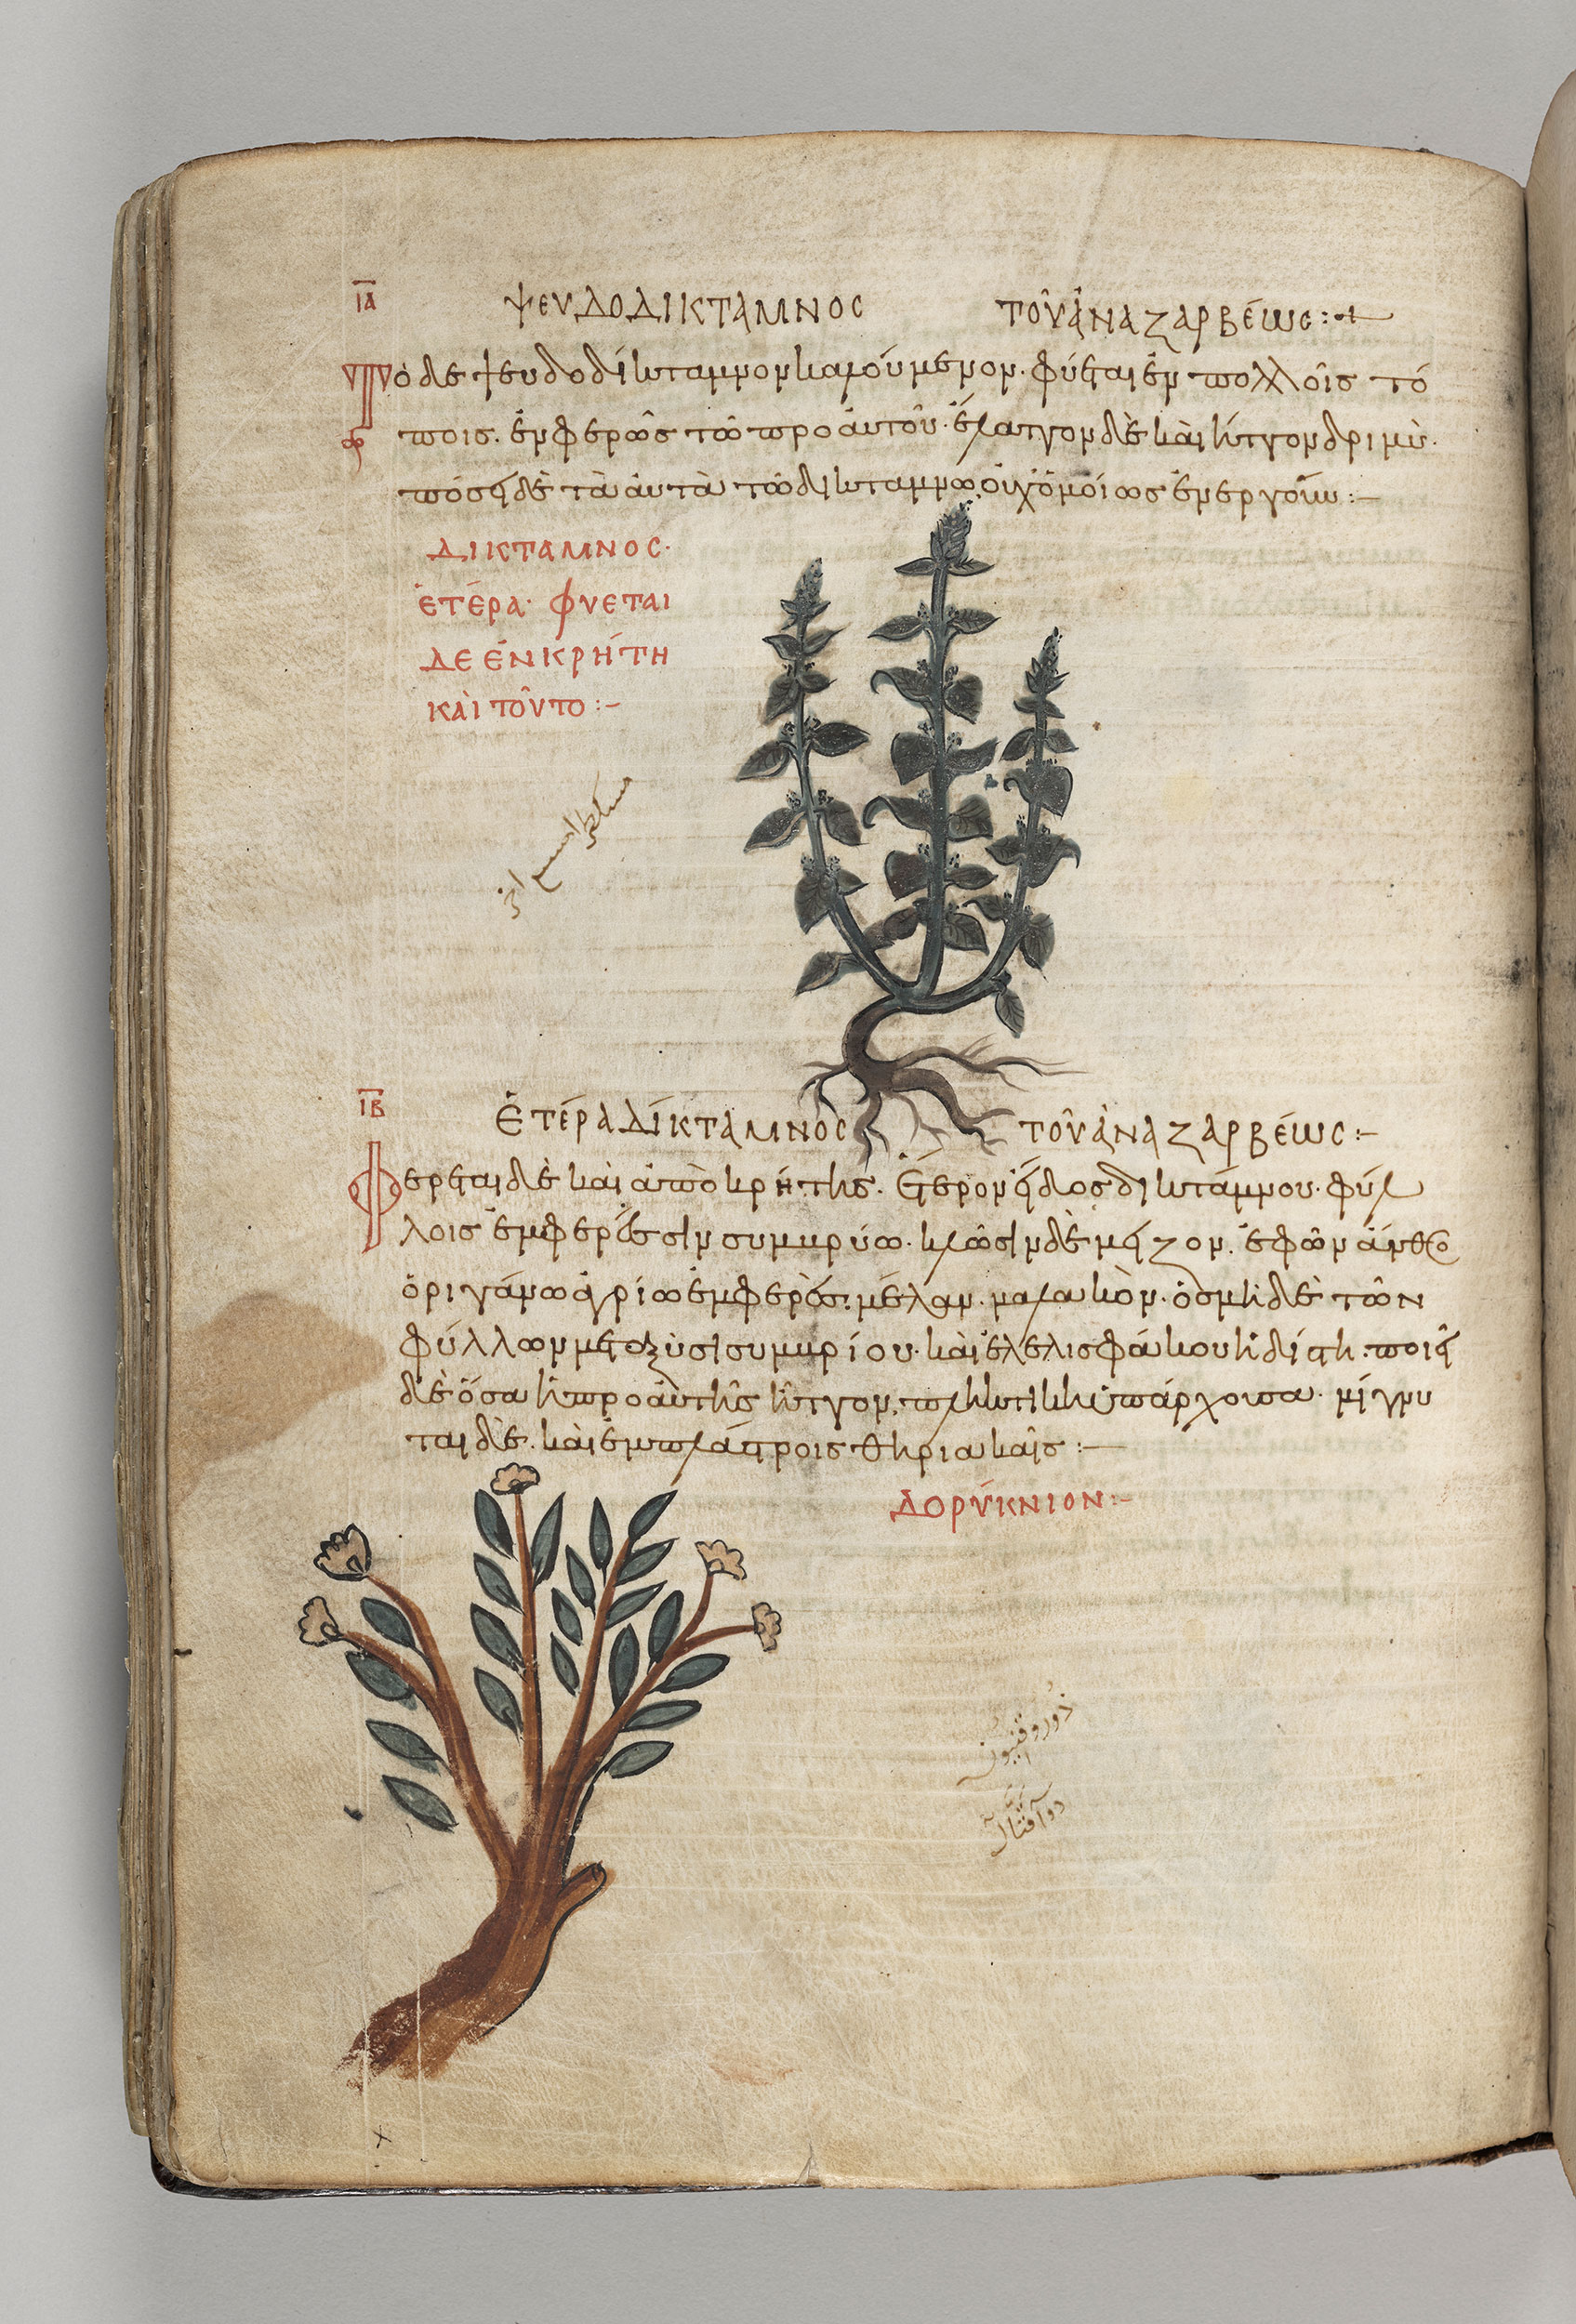 ΙΑ ΨΕΥΔΟΔΙΚΤΑΜΝΟΣ ΤΟῦ ἈΝΑΖΑΡΒΈΩΣ:
Τὸ δὲ ψευδοδίκταμνον καλούμενον· φύεται ἐν πολλοῖς τό
ποις. ἐμφερῶς τῶ πρὸ αὐτοῦ· ἔλαττον δὲ καὶ ἧττον δριμύ·
ποιεῖ δὲ τὰ αὐτὰ τῶ δικτάμνω, οὐχ ὁμοίως ἐνεργοῦν:-
ΔΙΚΤΑΜΝΟΣ·
ἙΤΈΡΑ· ΦΥΕΤΑΙ
ΔΕ ἘΝ ΚΡΉΤΗ
ΚΑῚ ΤΟῦΤΟ:-
ΙΒ ἙΤΈΡΑ ΔΊΚΤΑΜΝΟΣ ΤΟῦ ἈΝΑΖΑΡΒΈΩΣ:-
Φέρεται δὲ καὶ ἀπὸ κρήτης. ἕτερον εἶδος δικτάμνου· φύλ
λοις ἐμφερὲς σισυμβρίω· κλωσὶν δὲ μεῖζον. ἐφ ὧν ἄνθος
ὀριγάνω ἀγρίω ἐμφερὲς. μέλαν. μαλακὸν. ὀσμὴ δὲ τῶν
φύλλων μεταξὺ σισυμβρίου· καὶ ἐλελισφάκου ἡδίστη. ποιεῖ
δὲ ὅσα ἡ πρὸ αὐτῆς ἧττον, πληκτικὴ ὑπάρχουσα· μίγνυ
ται δὲ. καὶ ἐμπλάστροις θηριακαῖς:-
ΔΟΡΎΚΝΙΟΝ:-